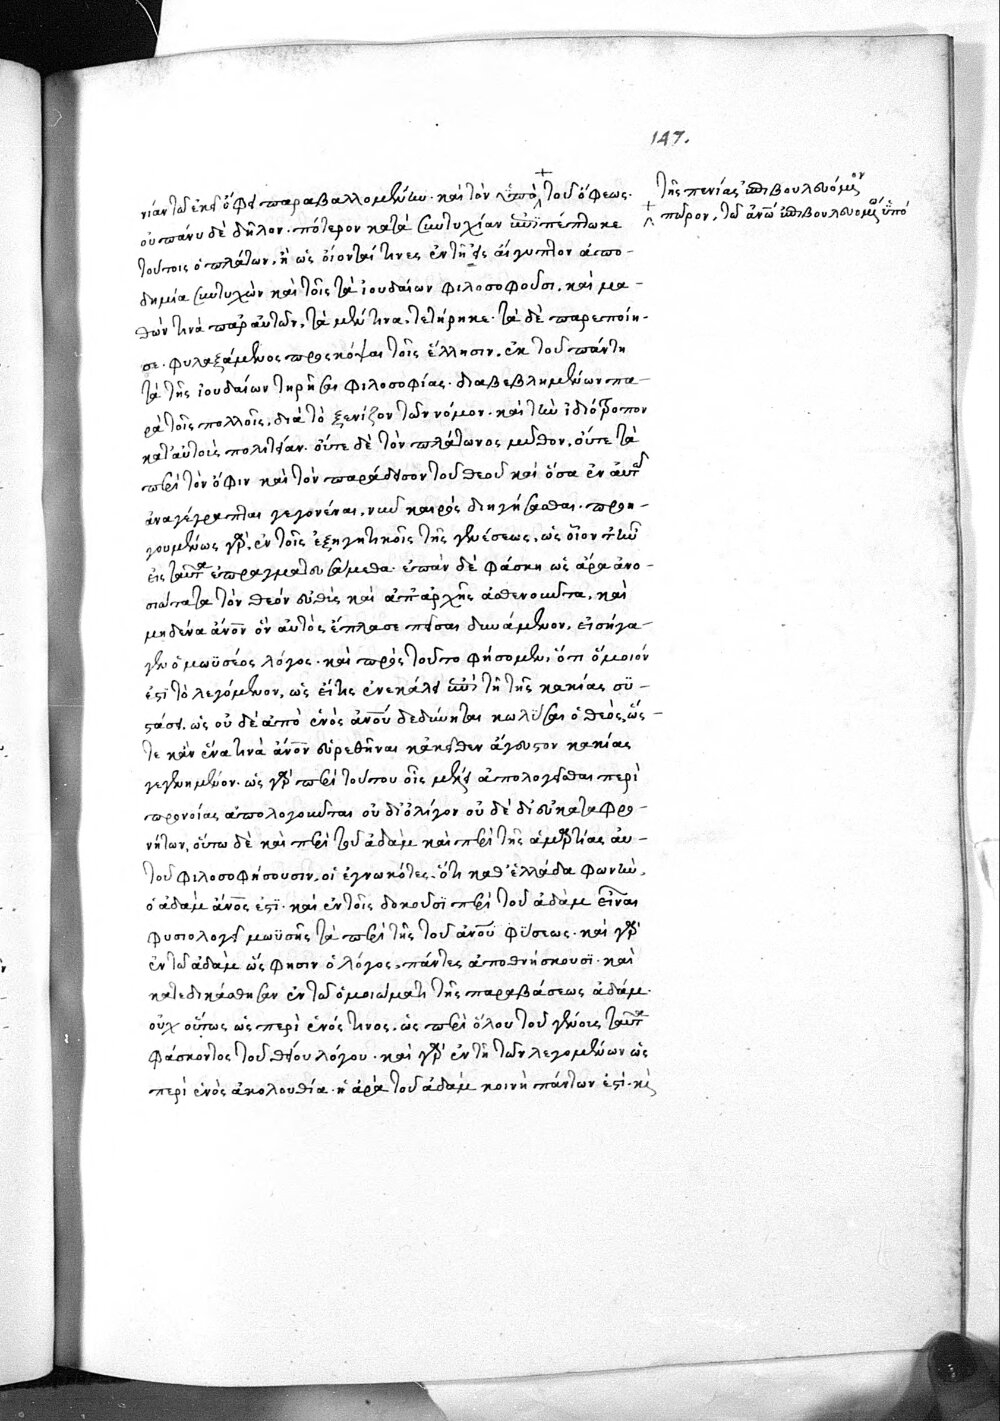 147.
νίαν τῷ ἐκεῖ ὄφει παραβαλλομένων. καὶ τὸν ὑπὸ τοῦ ὄφεως.
τῆς πενίας ἐπιβουλευόμενον
πόρον, τῷ ἀνῷ ἐπιβουλευομένῳ ὑπὸ
οὐ πάνυ δὲ δῆλον. πότερον κατὰ συντυχίαν ἐπιπέπτωκε
τούτοις ὁ πλάτων, ἢ ὡς οἴονταί τινες ἐν τῇ εἰς αἴγυπτον ἀπο-
δημία συντυχὼν καὶ τοῖς τὰ ἰουδαίων φιλοσοφοῦσι. καὶ μα-
θών τινὰ παρ αὐτῶν, τὰ μέν τινα, τετήρηκε. τὰ δὲ παρεποίη-
σε. φυλαξάμενος προσκόψαι τοῖς ἕλλησιν. ἐκ τοῦ πάντη
τὰ τῆς ἰουδαίων τηρῆσαι φιλοσοφίας. διαβεβλημένων πα-
ρὰ τοῖς πολλοῖς, διὰ τὸ ξενίζον τῶν νόμων. καὶ τὴν ἰδιότροπον
κατ αὐτοὺς πολιτείαν. οὔτε δὲ τὸν πλάτωνος μῦθον, οὔτε τὰ
περὶ τὸν ὄφιν καὶ τὸν παράδεισον τοῦ θεοῦ καὶ ὅσα ἐν αὐτῷ
ἀναγέγραπται γεγονέναι, νῦν καιρὸς διηγήσασθαι. προη-
γουμένως γὰρ, ἐν τοῖς ἐξηγητικοῖς τῆς γενέσεως, ὡς οἷον τ' ἦν
εἰς ταῦτα ἐπραγματευσάμεθα. ἐπὰν δὲ φάσκη ὡς ἄρα ἀνο-
σιώτατα τὸν θεὸν εὐθὺς καὶ ἀπ ἀρχῆς ἀσθενοῦντα, καὶ
μηδένα ἄνον ὃν αὐτὸς ἔπλασε πεῖσαι δυνάμενον, εἰσήγα-
γεν ὁ μωϋσέος λόγος. καὶ πρὸς τοῦτο φήσομεν, ὅτι ὅμοιόν
ἐστι τὸ λεγόμενον, ὡς εἴ τις ἐνεκάλει ἐπὶ τῇ τῆς κακίας συ-
στάσει. ὡς οὐδὲ ἀπὸ ἑνὸς ἀνοῦ δεδύνηται κωλῦσαι ὁ θεὸς, ὥς-
τε κἂν ἕνα τινὰ ἄνον εὑρεθῆναι κἀκεῖθεν ἄγευστον κακίας
γεγενημένον. ὡς γὰρ περὶ τούτου οἷς μέλει ἀπολογεῖσθαι περὶ
προνοίας ἀπολογοῦνται οὐ δι ὀλίγον οὐδὲ δι εὐκαταφρο-
νήτων, οὕτω δὲ καὶ περὶ τοῦ ἀδὰμ καὶ περὶ τῆς ἁμαρτίας αὐ-
τοῦ φιλοσοφήσουσιν, οἱ ἐγνωκότες. ὅτι καθ' ἑλλάδα φωνὴν,
ὁ ἀδὰμ ἄνος ἐστι. καὶ ἐν τοῖς δοκοῦσι περὶ τοῦ ἀδὰμ εἶναι
φυσιολογεῖ μωϋσῆς τὰ περὶ τῆς τοῦ ἀνοῦ φύσεως. καὶ γὰρ
ἐν τῷ ἀδὰμ ὥς φησιν ὁ λόγος, πάντες ἀποθνήσκουσι. καὶ
κατεδικάσθησαν ἐν τῷ ὁμοιώματι τῆς παραβάσεως ἀδάμ.
οὐχ οὕτως ὡς περὶ ἑνός τινος, ὡς περὶ ὅλου τοῦ γένους ταῦτα
φάσκοντος τοῦ θείου λόγου. καὶ γὰρ ἐν τῇ τῶν λεγομένων ὡς
περὶ ἑνὸς ἀκολουθία. ἡ ἀρὰ τοῦ ἀδὰμ κοινὴ πάντων ἐστί. καὶ